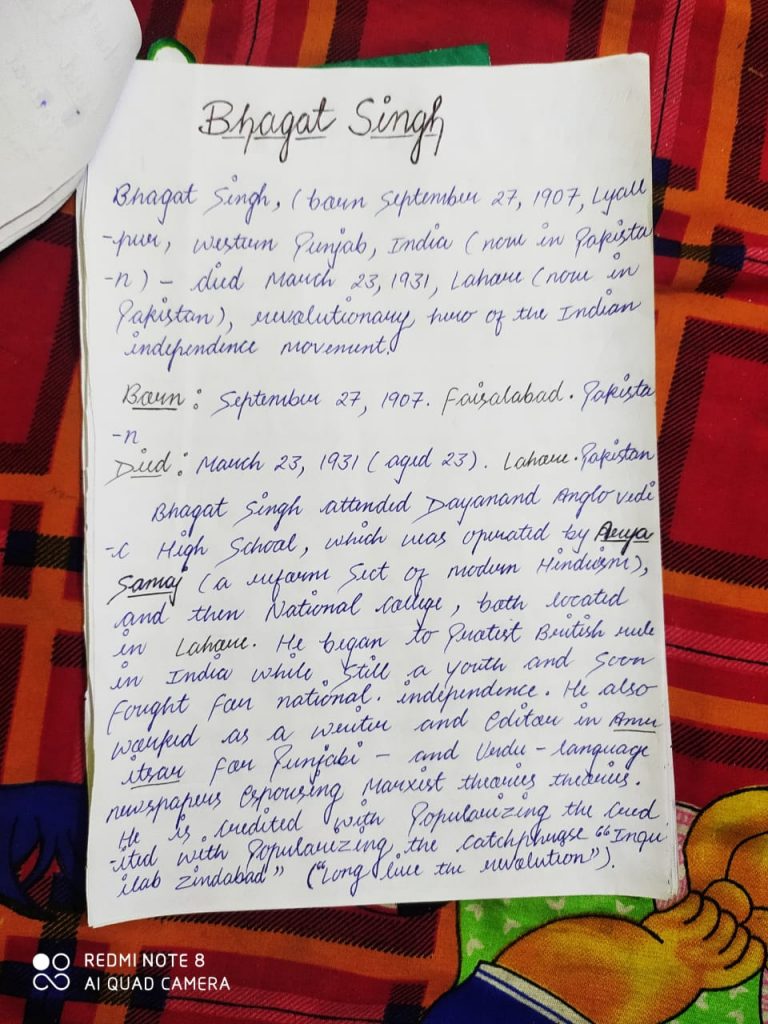 Bhagat Singh
Bhagat Singh, (born September 27, 1907, Lyall
-pur, western Punjab, India (now in Pakista
-n) - died March 23, 1931, Lahore (now in
Pakistan), revolutionary hero of the Indian
independence movement.
Born : September 27, 1907. Faisalabad. Pakista
-n
Died : March 23, 1931 (aged 23). Lahore. Pakistan
Bhagat Singh attended Dayanand Anglo vedi
-c High School, which was operated by Arya
Samaj (a reform Sect of modern Hinduism),
and then National College, both located
in Lahore. He began to Protest British rule
in India while Still a youth and Soon
fought for national. independence. He also
worked as a writer and editor in Amr
itsar for Punjabi - and Urdu - language
newspapers espousing Marxist theories theories.
He is credited with Popularizing the cred
-ited with Popularizing the catchphrase "Inqu
ilab Zindabad" ("Long live the revolution").
REDMI NOTE 8
AI QUAD CAMERA